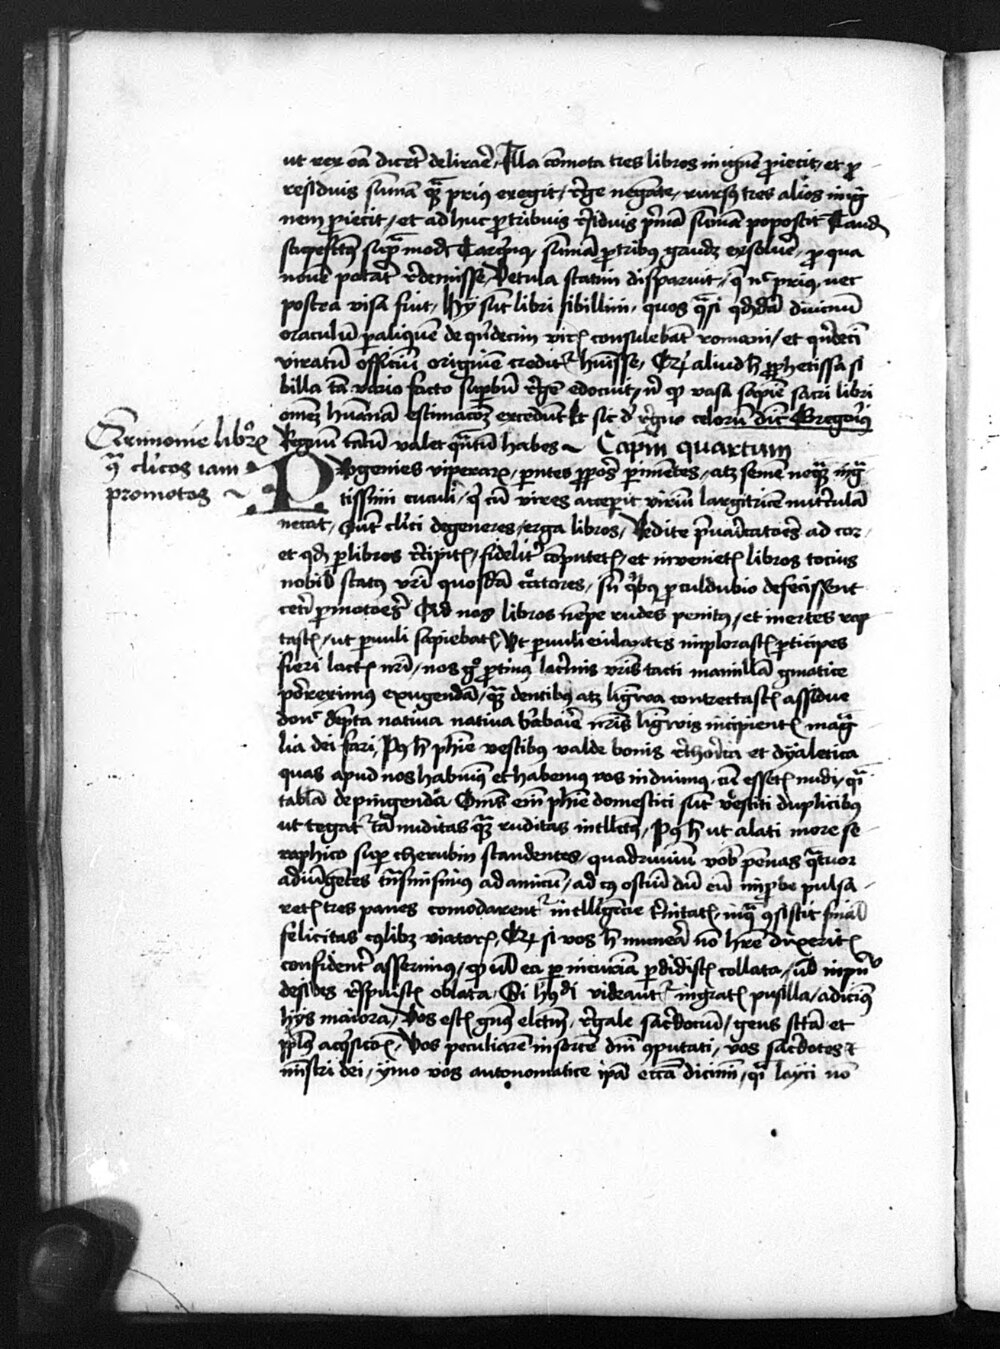 ut rex eā dicerꝫ deliraꝛē, Illa cōmota tres libros in ignē ꝓiecit, et ꝓ
residuis sūmā quā prius exegit, Rege negāte, rursus tres alios in ig
nem ꝓiecit, et adhuc ꝓ tribus residuis primā sūmā poposcit Tand
stupefctus supra modū Tarqinius, sūmā ꝓ tribus gaudꝫ exsoluē, ꝓ qua
novē potāt redemisse, Vetula statim disparuit, que nec prius, nec
postea visa fuit, Hij sūt libri sibillini, quos quasi qdā divinū
oraculū ꝑ aliquem de quindecim viris consulebāt romani, et quindecī
viratus officiū originē creditur huisse, Quid aliud hec ꝓphetissa si
billa tā vario facto suꝑbū Regē edocuit, nisi quod vasa sapīe sacri libri
omēs humanā estimacōꝫ excedunt Et sic de regno celorum dicit Gregorius
Regnū tantū valet quātū habes Capm quartum
Progenies viperaꝝ, ꝑntes ꝓprios perimētes, atqꝫ semē nequā ingra
tissimi cuculi, qui cū vires acceperit virium largitricē nutriculā
necat, Sunt clerici degeneres, erga libros, Redite prevaricatores ad cor,
et quod per libros recipitis, fideliter computetis, et invenietis libros tocius
nobilis status vestri quosdā creatores, sine quibus proculdubio defecissent
ceteri promotores Ad nos libros nempe rudes penitus, et inertes rep
tastis, ut parvuli sapiebatis, Ut parvuli eiulantes implorastis participes
fieri lactis nostri, nos ergo protinus lacrimis vestris tacti mamillā gramatice
porreximus exugendā, quā dentibus atqꝫ lingwa contrectastis assidue
donec dempta nativa nativa barbarie nostris lingwis inciperetis magna
lia dei fari, Post hec philosophie vestibus valde bonis Rethorica et dyaletica
quas apud nos habuimus et habemus vos induimus, cum essetis nudi, quasi
tabula depingenda, Omnes enim philosophie domestici sunt vestiti duplicibus
ut tegatur tam nuditas quam ruditas intellectus, Post hec ut alati more se
raphico super cherubin scandentes, quadruvium vobis pennas quatuor
adiungentes transmisimus ad amicum, ad cuius ostium dum cum improbe pulsa
retis tres panes comodarentur intelligencie trinitatis, in qua consistit finalis
felicitas cuiuslibet viatoris, Quod si vos hec munera non habere dixeritis
confidenter asserimus, quod vel ea per incuriam perdidistis collata, vel in principio
desides respuistis oblata, Si huiusmodi videantur ingratis pusilla, adicimus
hijs maiora, Vos estis genus electum, regale sacerdocium, gens sancta et
populus acquisicionis, Vos peculiarem in sortem domini computati, vos sacerdotes et
ministri dei, ymo vos autonomatice ipsa ecclesia dicimini, quasi layci non
Cerimonie libroꝝ
ꝗ clericos iam
promotos